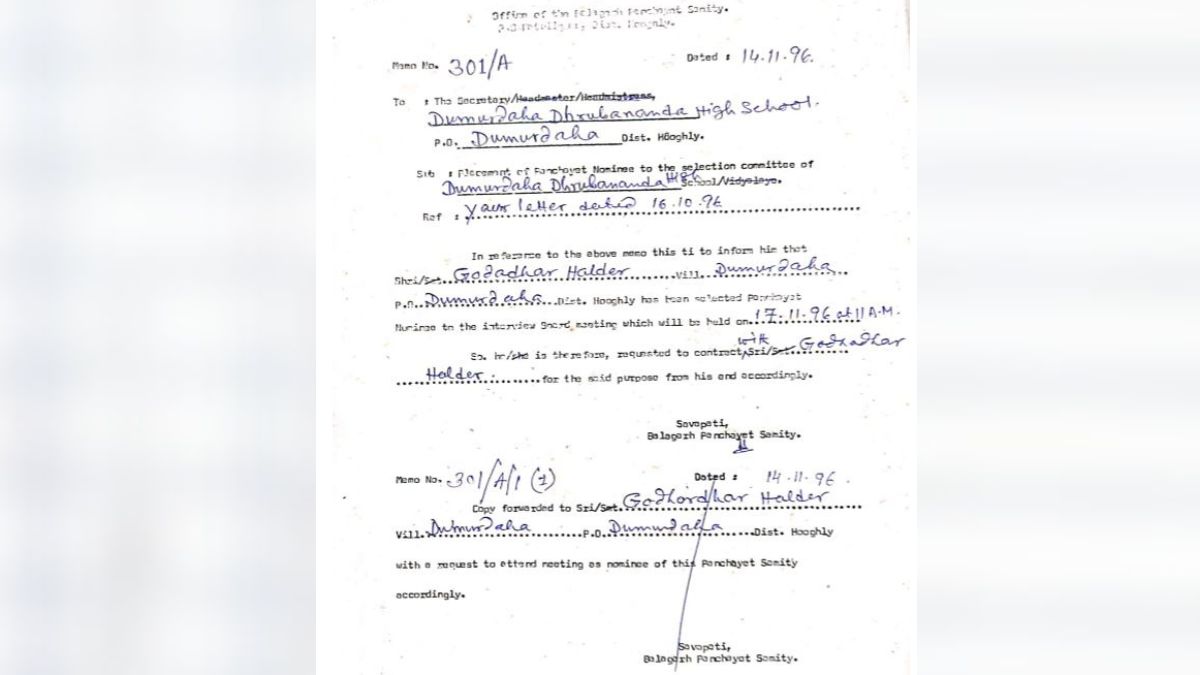 Office of the Balagarh Panchayat Samity.
Dist. Hooghly.
Memo No. 301/A Dated : 14.11.96.
To : The Secretary/Headmaster/Headmistress,
Dumurdaha Dhrubananda High School.
P.O. Dumurdaha Dist. Hooghly.
Sub : Placement of Panchayat Nominee to the selection committee of
Dumurdaha Dhrubananda High School/Vidyalaya.
Ref : Your letter dated 16.10.96
In reference to the above memo this ti to inform him that
Shri/Smt. Godadhar Halder Vill. Dumurdaha
P.O. Dumurdaha Dist. Hooghly has been selected Panchayat
Nominee to the interview Board meeting which will be held on 17.11.96 at 11 A.M.
So, he/she is therefore, requested to contract with Sri/Smt. Godhadhar
Halder. for the said purpose from his end accordingly.
Savapati,
Balagarh Panchayet Samity.
Memo No. 301/A/1 (1) Dated : 14.11.96.
Copy forwarded to Sri/Smt. Godhordhar Halder
Vill. Dumurdaha P.O. Dumurdaha Dist. Hooghly
with a request to attend meeting as nominee of this Panchayet Samity
accordingly.
Savapati,
Balagarh Panchayet Samity.